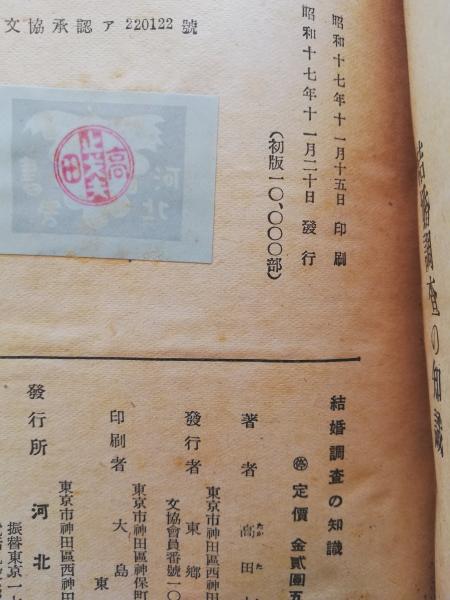 結婚調査の知識
昭和十七年十一月十五日 印刷
昭和十七年十一月二十日 發行
(初版一〇、〇〇〇部)
文協承認ア 220122 號
結婚調査の知識
㊝ 定價 金貳圓五
著者 高田
たか た
東京市神田區西神田
發行者 東鄕
文協會員番號一〇
東京市神田區神保町
印刷者 大島
東京市神田區西神田
發行所 河北
振替東京一